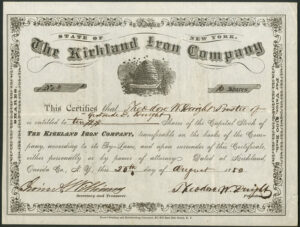 STATE OF NEW YORK,
The Kirkland Iron Company
Shares
This Certifies that Theodore W. Dwight Trustee of
Dwight
is entitled to Shares of the Capital Stock of
THE KIRKLAND IRON COMPANY, transferable on the books of the Com-
pany, according to its By-Laws, and upon surrender of this Certificate,
either personally or by power of attorney. Dated at Kirkland,
Oneida Co., N. Y., this 28th day of August 18
Secretary and Treasurer
Theodore W. Dwight